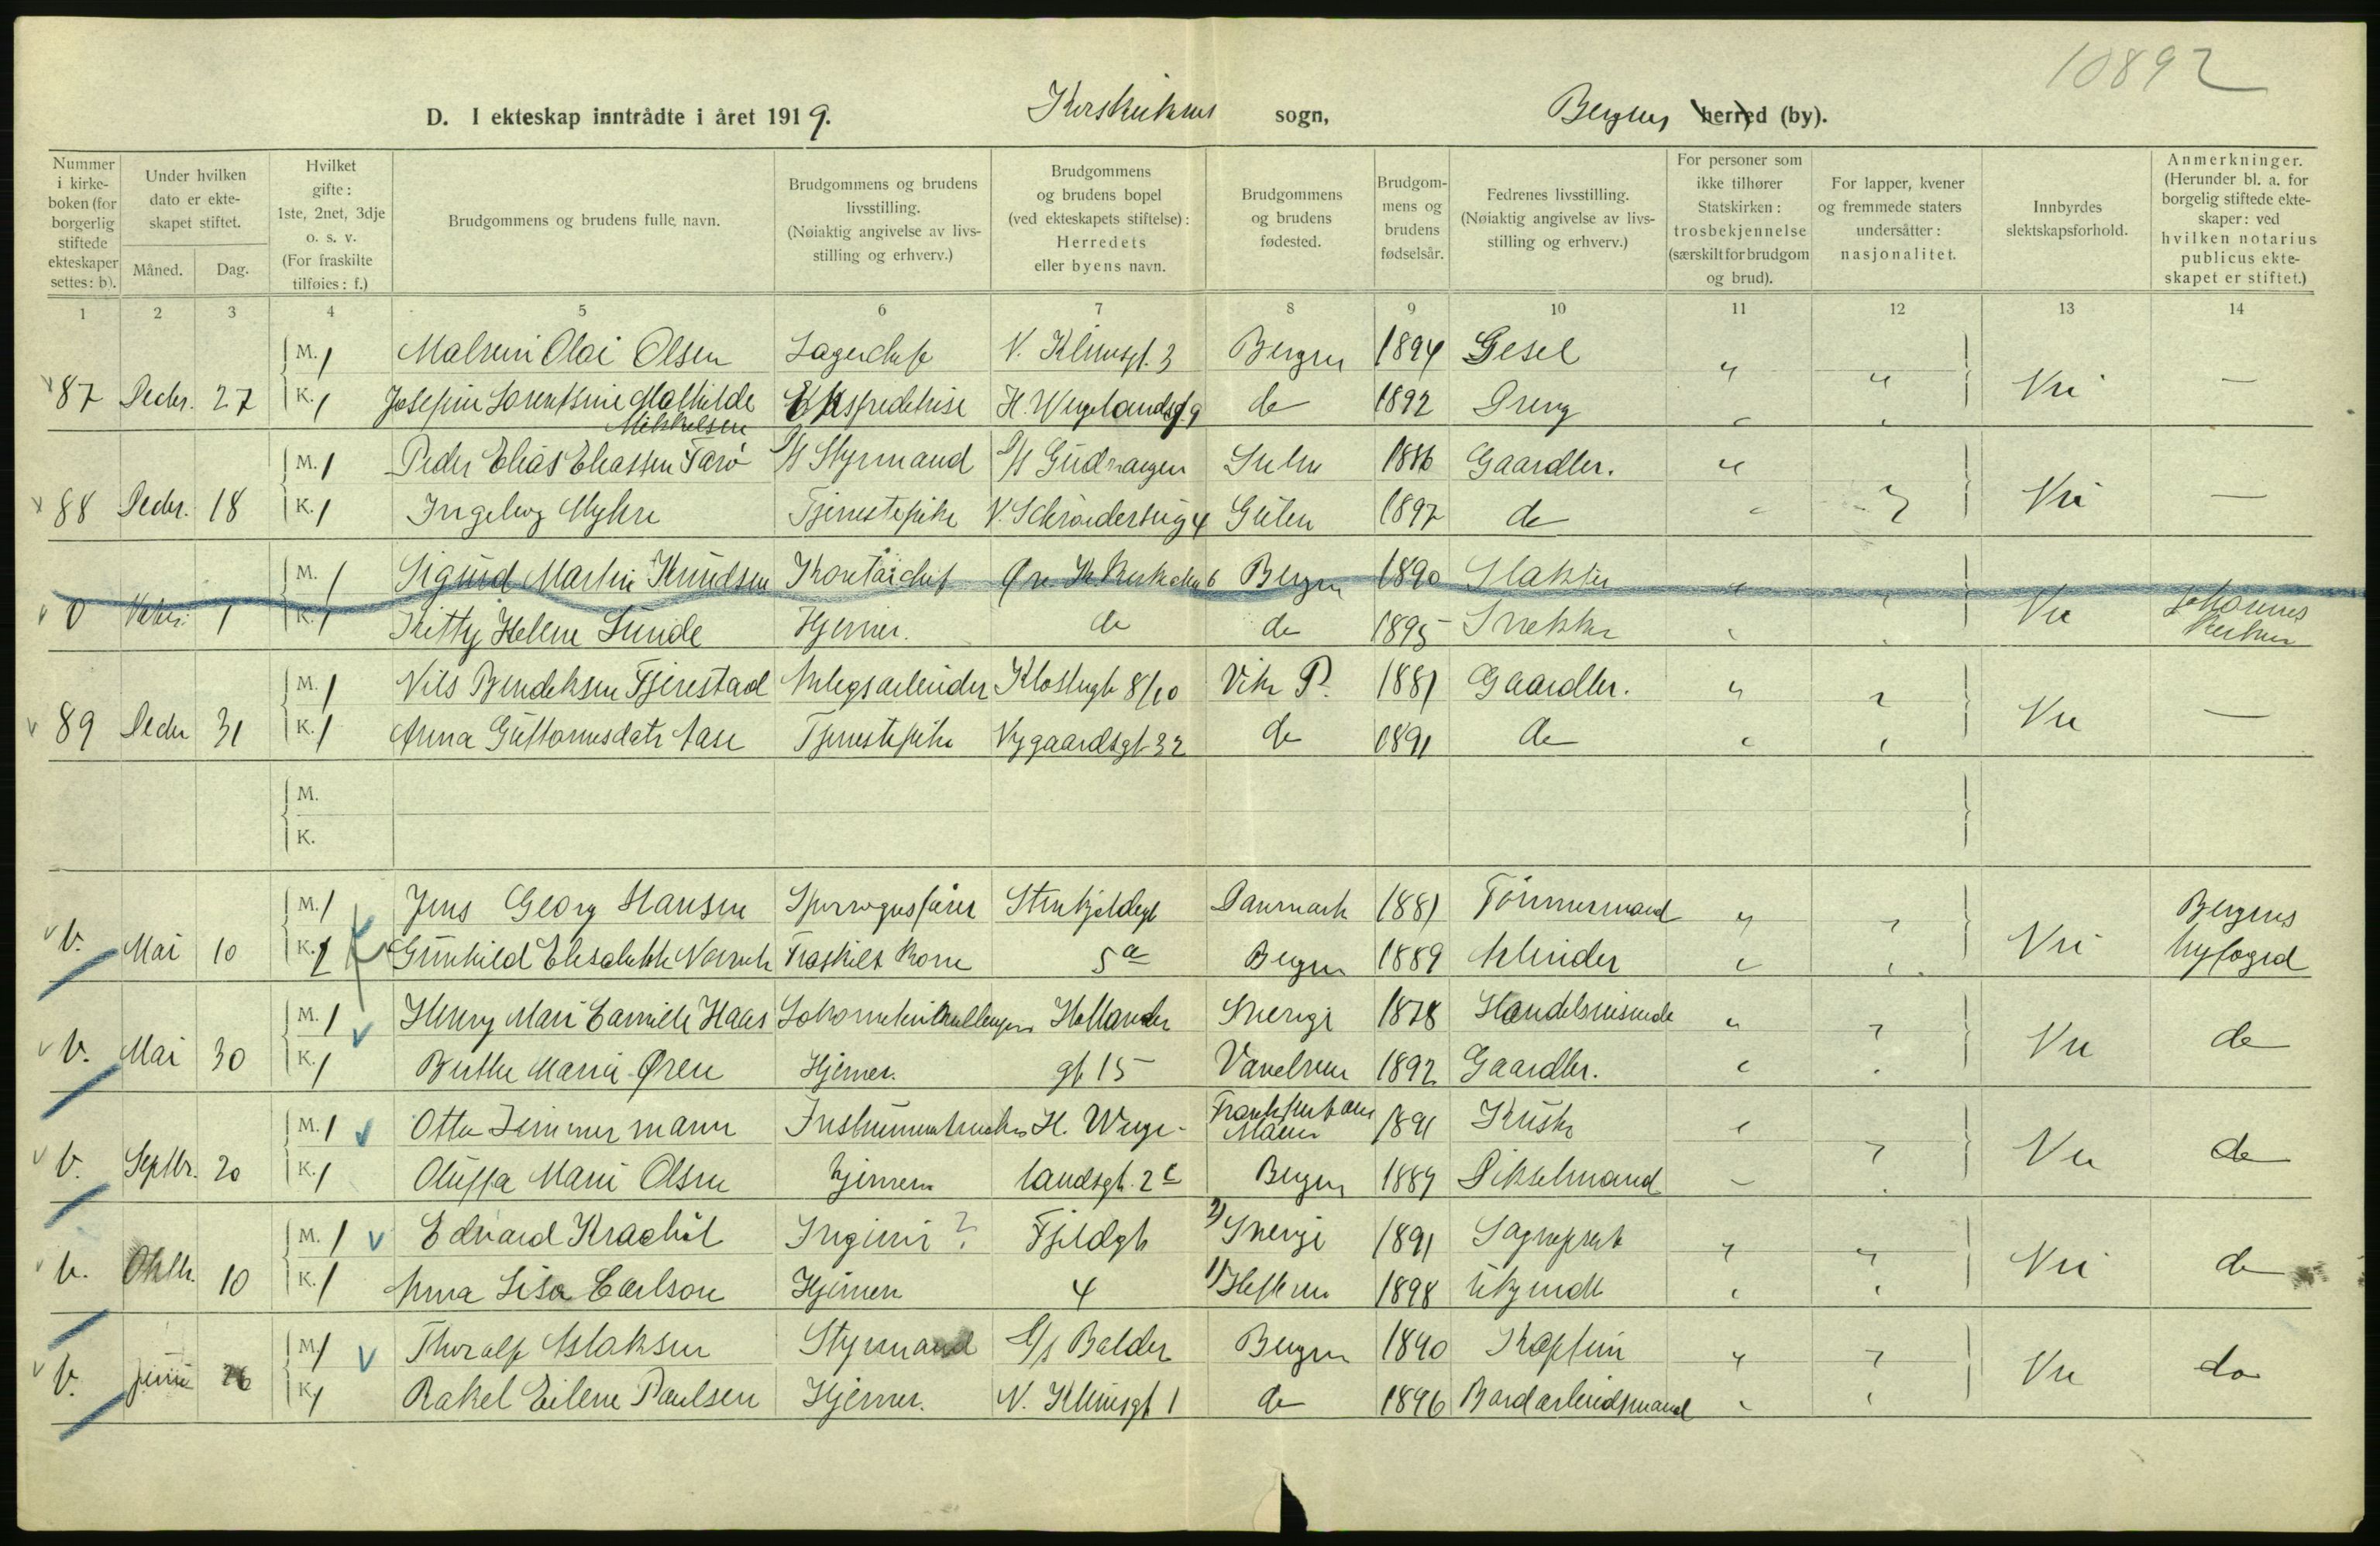 10892
D. I ekteskap inntrådte i året 1919. Korskirkens sogn, Bergens herred (by).
Nummer i kirke-boken (for borgerlig stiftede ekteskaper settes: b).
Under hvilken dato er ekte-skapet stiftet.
Måned. Dag.
Hvilket gifte: 1ste, 2net, 3dje o. s. v. (For fraskilte tilføies: f.)
Brudgommens og brudens fulle navn.
Brudgommens og brudens livsstilling. (Nøiaktig angivelse av livs-stilling og erhverv.)
Brudgommens og brudens bopel (ved ekteskapets stiftelse): Herredets eller byens navn.
Brudgommens og brudens fødested.
Brudgom-mens og brudens fødselsår.
Fedrenes livsstilling. (Nøiaktig angivelse av livs-stilling og erhverv.)
For personer som ikke tilhører Statskirken: trosbekjennelse (særskilt for brudgom og brud).
For lapper, kvener og fremmede staters undersåtter: nasjonalitet.
Innbyrdes slektskapsforhold.
Anmerkninger. (Herunder bl. a. for borgelig stiftede ekte-skaper: ved hvilken notarius publicus ekte-skapet er stiftet.)
1 2 3 4 5 6 7 8 9 10 11 12 13 14
M. 1 Olai Olsen Lagerchef V. Klimsgt. 3 Bergen 1894 Gesel " "
87 Decbr. 27 Nei —
K. 1 Josefine Lorentsine Mathilde Mikkelsen Ekspeditrise H. Wergelandsgt 9 do 1892 Dreng " "
M. 1 Peder Elias Eliassen Farø S/S Styrmand Sulen 1886 Gaardbr. "
88 Decbr. 18 Nei —
K. 1 Ingeborg Myhre Tjenestepike Gulen 1897 do " "
M. 1 Sigurd Martin Knudsen Kontorchef Øvr. Kr. 6 Bergen 1890 Slakter " "
0 1 Nei Johannes Kirken
K. 1 Kitty Helene Lunde Hjemmev. do do 1895 Snekker " "
M. 1 Nils Bendiksen Tjerestad Anlegsarbeider Klostergt 8/10 Vik P. 1881 Gaardbr. " "
89 Decbr 31 Nei —
K. 1 Anna Guttormsdatr Aase Tjenestepike Nygaardsgt 32 do 1891 do " "
M.
K.
M. 1 Jens Georg Hansen Sporvognsfører Stenkjeldergt Danmark 1881 Tømmermand " "
b. Mai 10 Nei Bergens byfoged
K. 1 Gunhild Elisabeth Fraskilt Kone 5 a Bergen 1889 Arbeider " "
M. 1 Henry Mari Camille Haas Hollender Sverige 1878 Handelsreisende " "
b. Mai 30 Nei do
K. 1 Berthe Marie Øren Hjemmev. gt 15 Vanelven 1892 Gaardbr. " "
M. 1 Otto Zimmermann Instrumentmaker H. Werge- Frankfurt am Main 1891 Kusk " "
b. Septbr. 20 Nei do
K. 1 Oluffa Marie Olsen Hjemmev landsgt. 2 c Bergen 1889 Dikselmand " "
M. 1 Edvard Ingeniør ? Fjeldgt 2) Sverige 1891 " "
b. Oktb. 10 Nei do
K. 1 Anna Lisa Carlson Hjemmev 4 1) 1898 Ukjendt " "
M. 1 Thoralf Aslaksen Styrmand S/S Balder Bergen 1890 Kaptein " "
b. Juni 26 Nei do
K. 1 Rakel Eilene Paulsen Hjemmev. N. Klimsgt 1 do 1896 " "